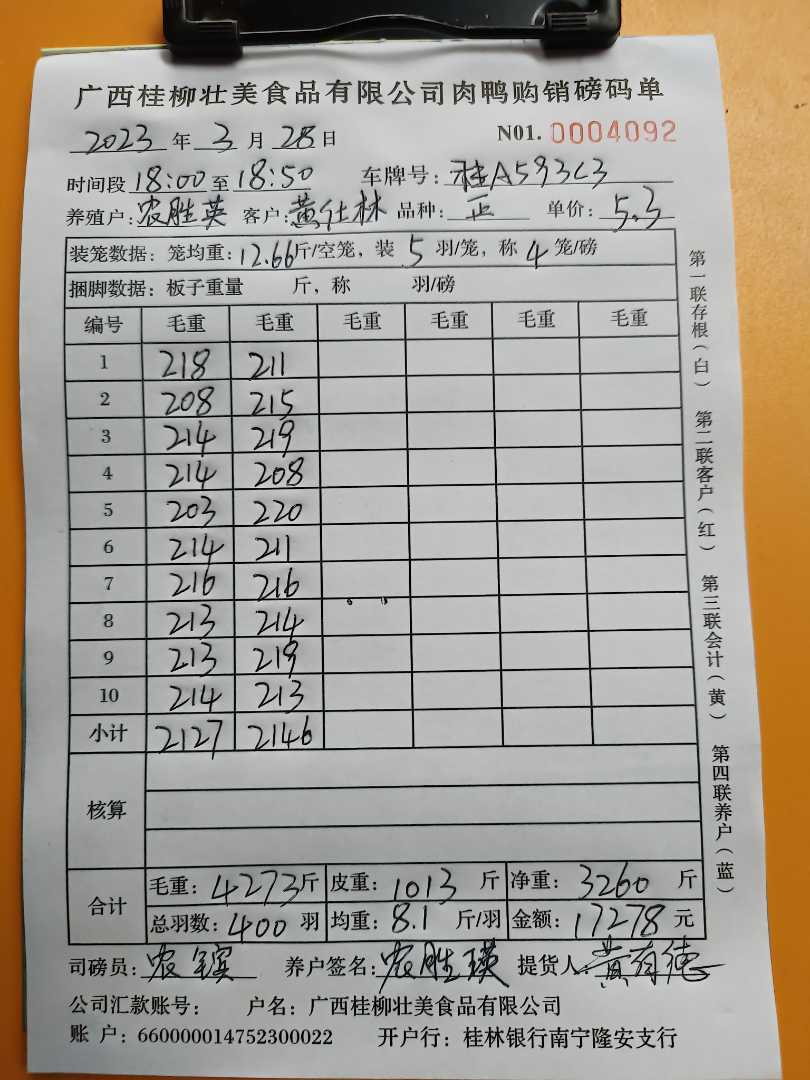 广西桂柳壮美食品有限公司肉鸭购销磅码单
2023 年 3 月 28 日 N01. 0004092
时间段 18:00 至 18:50 车牌号: 桂A593C3
养殖户: 农胜英 客户: 黄仕林 品种: 正 单价: 5.3
装笼数据: 笼均重: 12.66 斤/空笼, 装 5 羽/笼, 称 4 笼/磅
捆脚数据: 板子重量 斤, 称 羽/磅
编号 毛重 毛重 毛重 毛重 毛重 毛重
1 218 211
2 208 215
3 214 219
4 214 208
5 203 220
6 214 211
7 216 216
8 213 214
9 213 219
10 214 213
小计 2127 2146
核算
合计
毛重: 4273 斤 皮重: 1013 斤 净重: 3260 斤
总羽数: 400 羽 均重: 8.1 斤/羽 金额: 17278 元
司磅员: 农 养户签名: 农胜瑛 提货人: 黄有德
公司汇款账号: 户名: 广西桂柳壮美食品有限公司
账 户: 660000014752300022 开户行: 桂林银行南宁隆安支行
第一联存根(白)
第二联客户(红)
第三联会计(黄)
第四联养户(蓝)